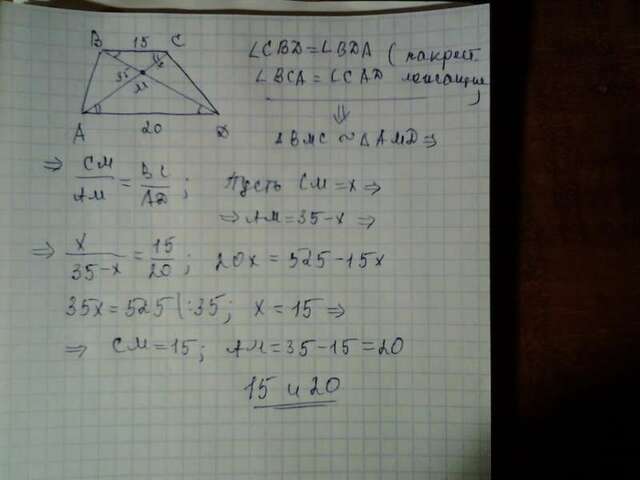 B 15 C
35 x
M
A 20 D
∠CBD = ∠BDA ( накрест
∠BCA = ∠CAD лежащие)
⇓
△BMC ~ △AMD ⇒
⇒ CM/AM = BC/AD ; Пусть CM = x ⇒
⇒ AM = 35 - x ⇒
⇒ x/35-x = 15/20 ; 20x = 525 - 15x
35x = 525 | :35 ; x = 15 ⇒
⇒ CM = 15 ; AM = 35 - 15 = 20
15 и 20